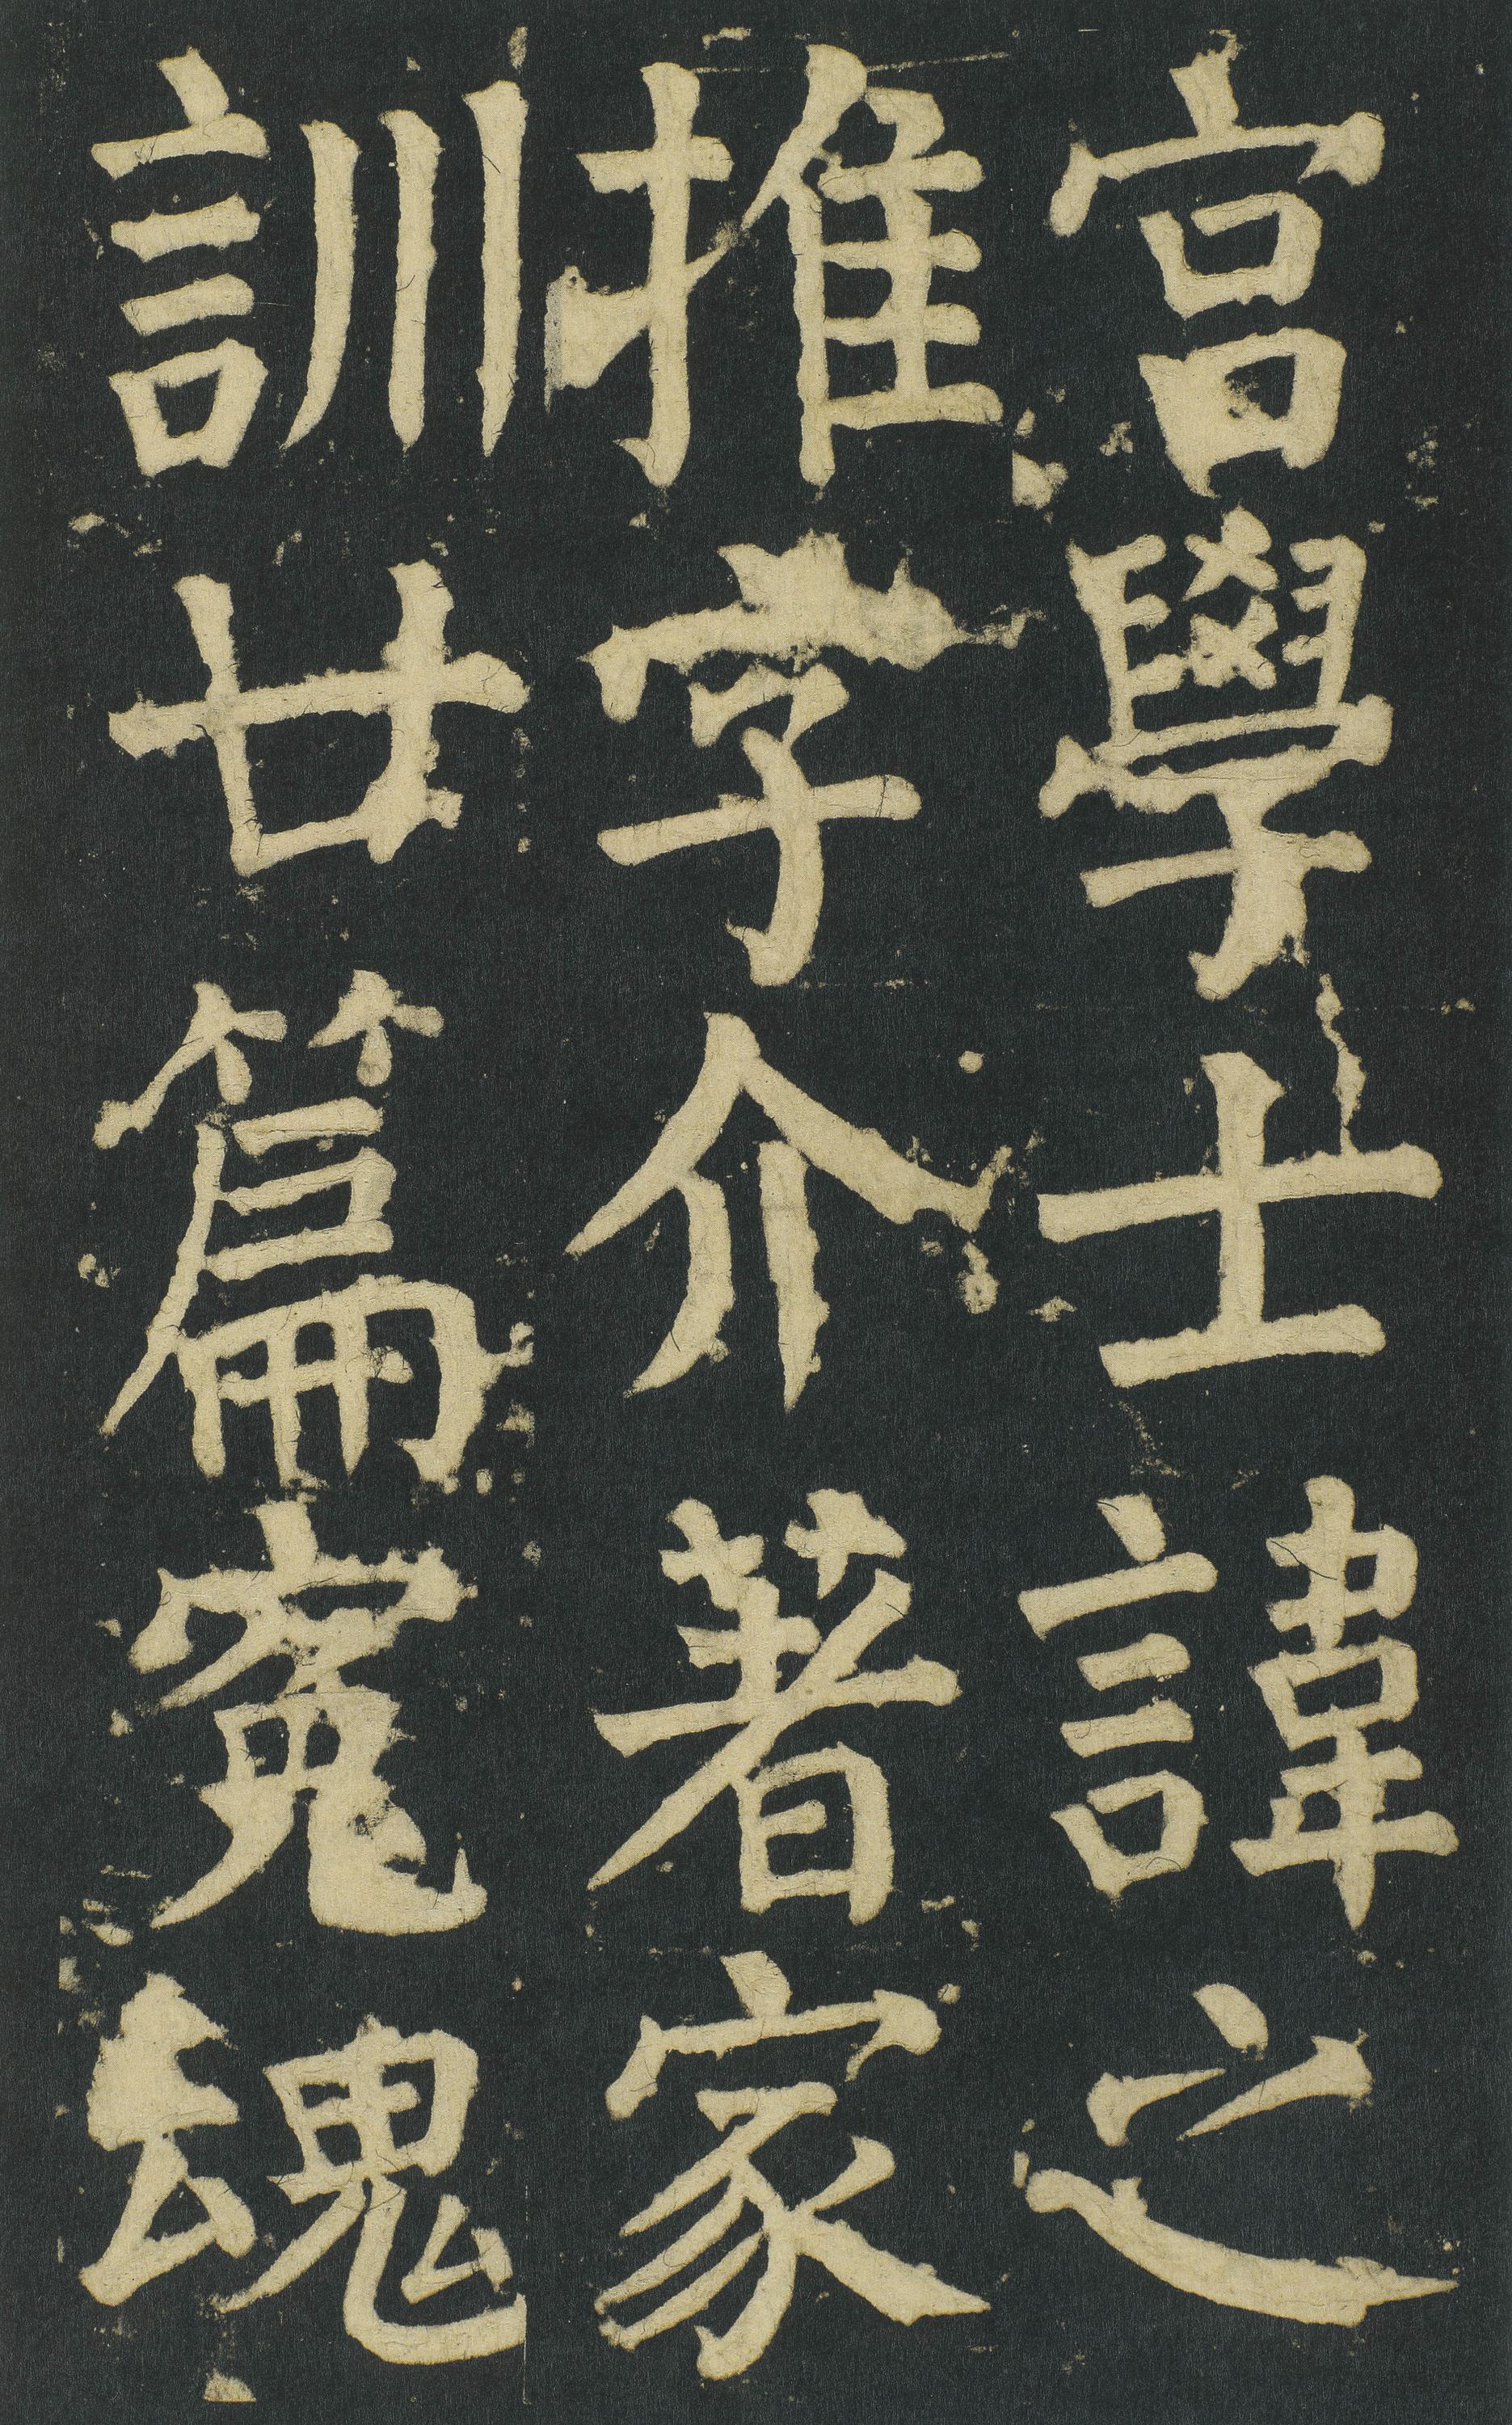 宮學士諱之
推字介著家
訓廿篇冤魂